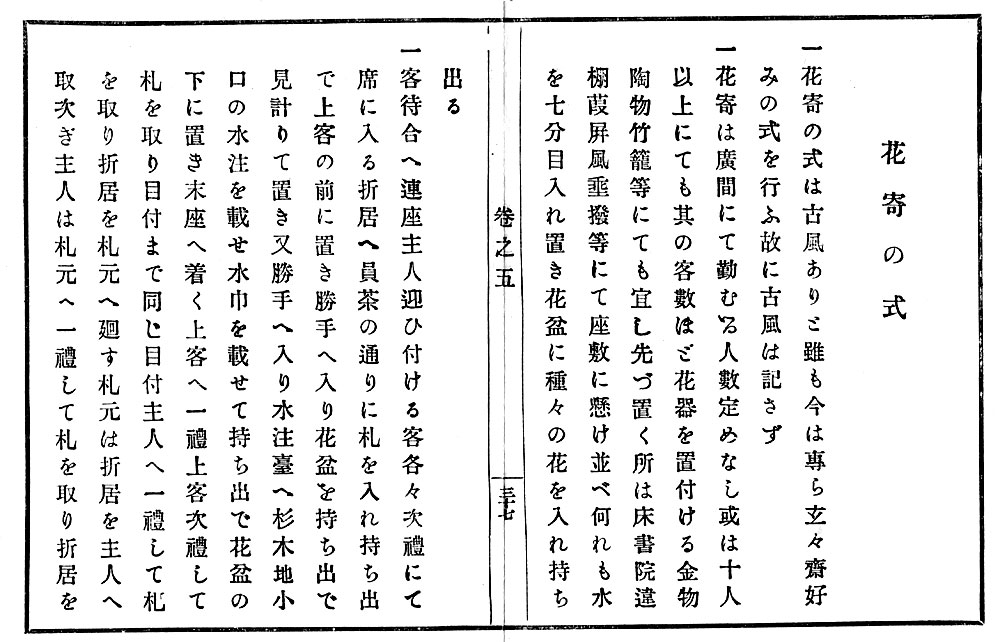 花寄の式
一花寄の式は古風ありと雖も今は專ら玄々齋好
みの式を行ふ故に古風は記さず
一花寄は廣間にて勤むる人數定めなし或は十人
以上にても其の客數ほど花器を置付ける金物
陶物竹籠等にても宜し先づ置く所は床書院違
棚葭屏風垂撥等にて座敷に懸け並べ何れも水
を七分目入れ置き花盆に種々の花を入れ持ち
卷之五
三十七
出る
一客待合へ連座主人迎ひ付ける客各々次禮にて
席に入る折居へ員茶の通りに札を入れ持ち出
で上客の前に置き勝手へ入り花盆を持ち出で
見計りて置き又勝手へ入り水注臺へ杉木地小
口の水注を載せ水巾を載せて持ち出で花盆の
下に置き末座へ着く上客へ一禮上客次禮して
札を取り目付まで同じ目付主人へ一禮して札
を取り折居を札元へ廻す札元は折居を主人へ
取次ぎ主人は札元へ一禮して札を取り折居を